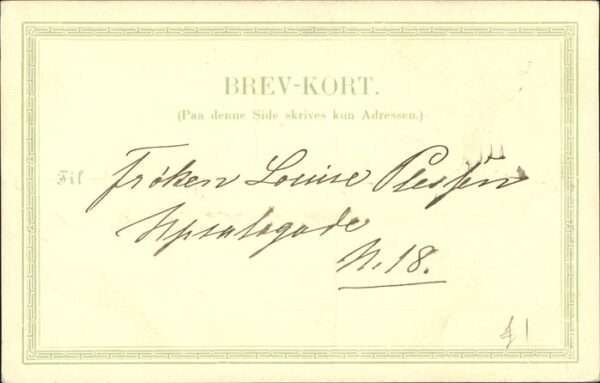 BREV-KORT.
(Paa denne Side skrives kun Adressen.)
Til Frøken Louise Plessen
Upsalagade
N. 18.